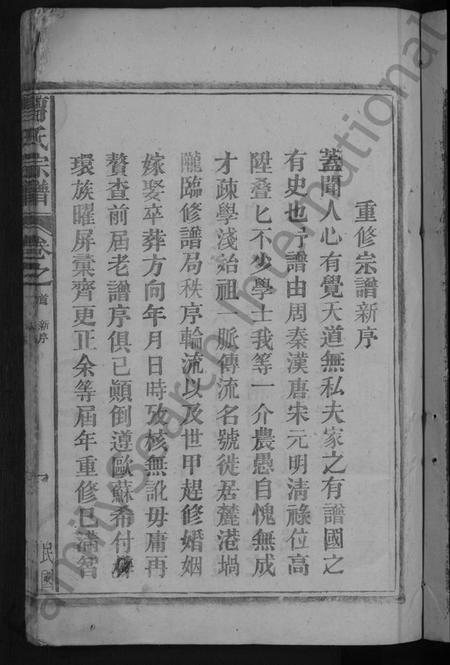 重修宗譜新序
蓋聞人心有覺天道無私夫家之有譜國之
有史也予譜由周秦漢唐宋元明清祿位高
陞叠匕不少學士我等一介農愚自愧無成
才疎學淺始祖一脈傳流名號徙居麓港堝
隴臨修譜局秩序輪流以及世甲趕修婚姻
嫁娶卒葬方向年月日時攷核無訛毋庸再
贅查前屆老譜序俱己顚倒遵歐蘇希付梓
環族曜屏彙齊更正余等屆年重修已滿智
氏宗譜
卷之
首 新序
一
民國
FamilySearch International